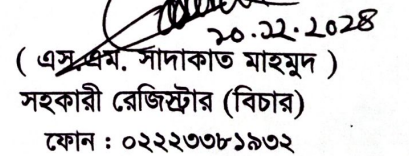 ২০.২২.২০২৪
( এস.এম. সাদাকাত মাহমুদ )
সহকারী রেজিস্ট্রার (বিচার)
ফোন : ০২২২৩৩৮১৯৩২